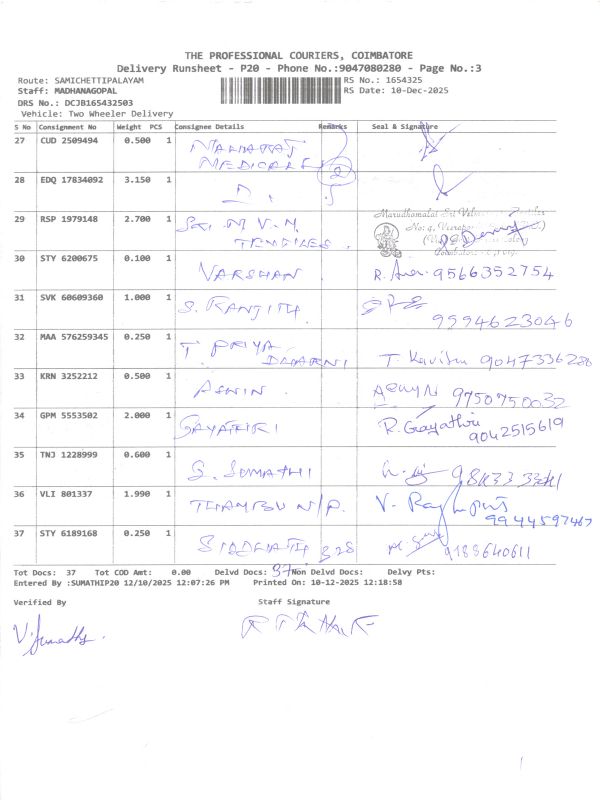 THE PROFESSIONAL COURIERS, COIMBATORE
Delivery Runsheet - P20 - Phone No.:9047080280 - Page No.:3
Route: SAMICHETTIPALAYAM RS No.: 1654325
Staff: MADHANAGOPAL RS Date: 10-Dec-2025
DRS No.: DCJB165432503
Vehicle: Two Wheeler Delivery
S No Consignment No Weight PCS Consignee Details Remarks Seal & Signature
27 CUD 2509494 0.500 1
MEDICALS 2
28 EDQ 17834092 3.150 1
29 RSP 1979148 2.700 1 Sri M.V.M. Marudhamalai Sri
TEXTILES.
30 STY 6200675 0.100 1 VARSHAN R. 9566352754
31 SVK 60609360 1.000 1 S. RANJITH
9994623046
32 MAA 576259345 0.250 1 T. PRIYA
DHARNI T. Kavitha 9047336286
33 KRN 3252212 0.500 1 ASWIN. Aswin 9750750032
34 GPM 5553502 2.000 1 GAYATHIRI R. Gayathiri
9042515619
35 TNJ 1228999 0.600 1 S. SUMATHI
36 VLI 801337 1.990 1 THAMBU N/P. V.
9944597467
37 STY 6189168 0.250 1 SIDDHATH 328 9188640611
Tot Docs: 37 Tot COD Amt: 0.00 Delvd Docs: 37 Non Delvd Docs: Delvy Pts:
Entered By :SUMATHIP20 12/10/2025 12:07:26 PM Printed On: 10-12-2025 12:18:58
Verified By Staff Signature
V. Sumathy.